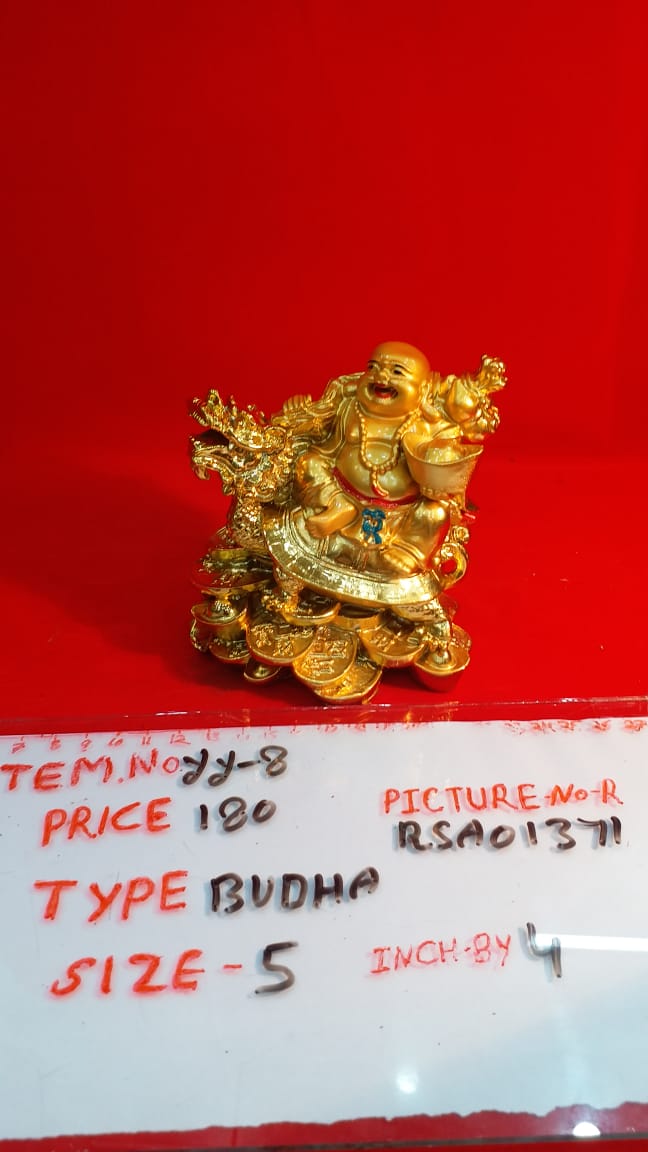 TEM.No yy-8
PRICE 180
PICTURE-No-R
RSA01371
TYPE BUDHA
SIZE-5 INCH-BY 4